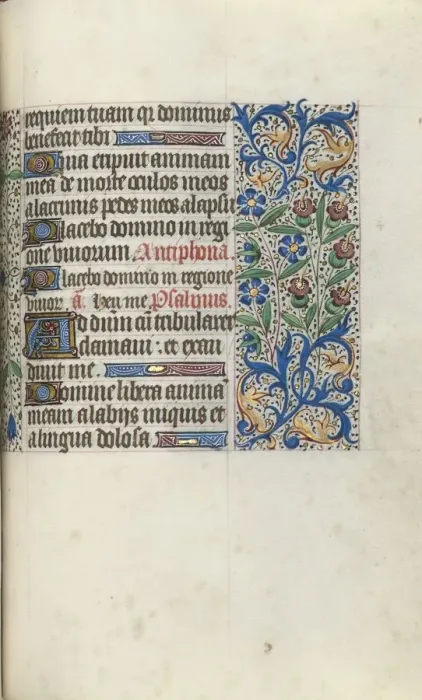 requiem tuam qr dominus
benefecit tibi
Quia eripuit animam
mea de morte oculos meos
a lacrimis pedes meos a lapsu
Placebo domino in regi
one vivorum Antiphona.
Placebo domino in regione
vivor. a. Heu me Psalmus.
Ad dnm cu tribularer
clamavi : et exau
divit me
Domine libera anima
meam a labijs iniquis et
a lingua dolosa